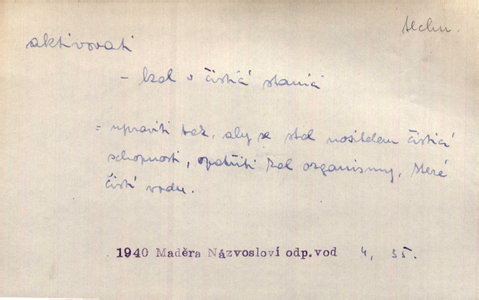 techn.
aktivovati
– kal v čistící stanici
= upraviti kal, aby se stal nositelem čistící
schopnosti, opatřiti kal organismy, které
čistí vodu.
1940 Maděra Názvosloví odp.vod 4, 35.